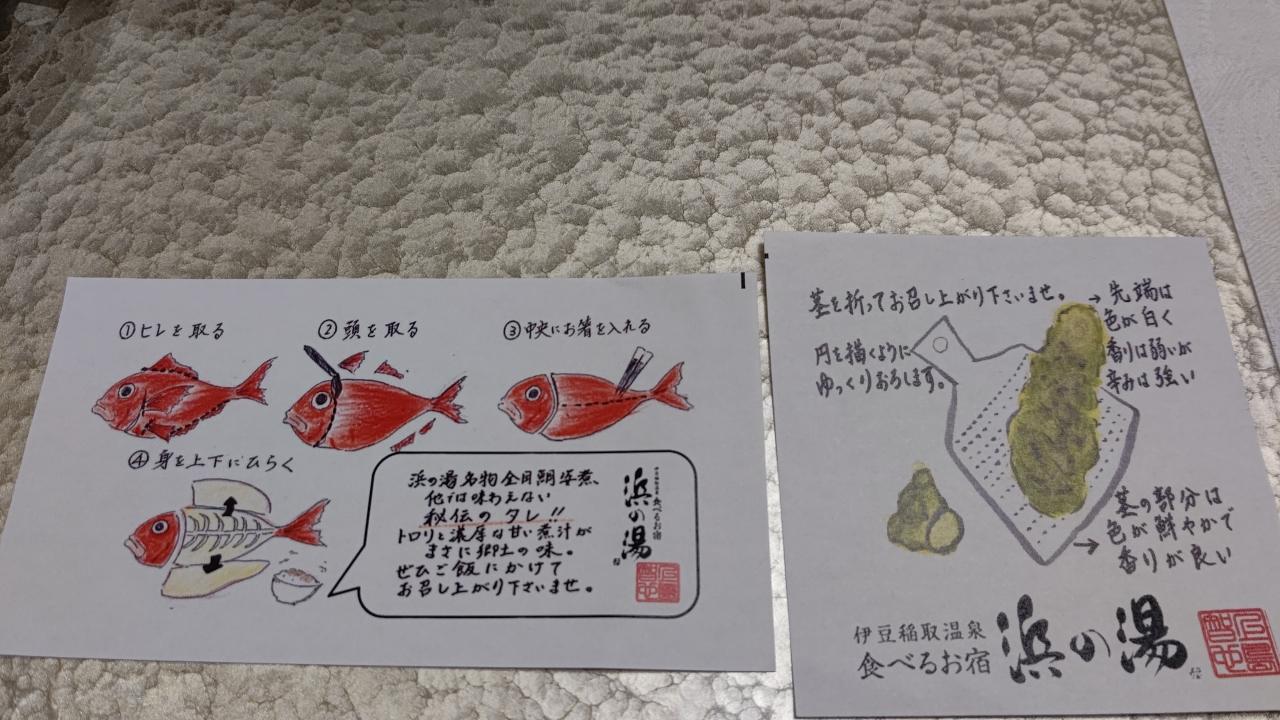 ①ヒレを取る
②頭を取る
③中央にお箸を入れる
④身を上下にひらく
浜の湯名物金目鯛姿煮、
他では味わえない
秘伝のタレ!!
トロリと濃厚な甘い煮汁が
まさに郷土の味。
ぜひご飯にかけて
お召し上がり下さいませ。
食べるお宿
浜の湯
茎を折ってお召し上がり下さいませ。
円を描くように
ゆっくりおろします。
→先端は
色が白く
香りは弱いが
辛みは強い
茎の部分は
→色が鮮やかで
香りが良い
伊豆稲取温泉
食べるお宿
浜の湯